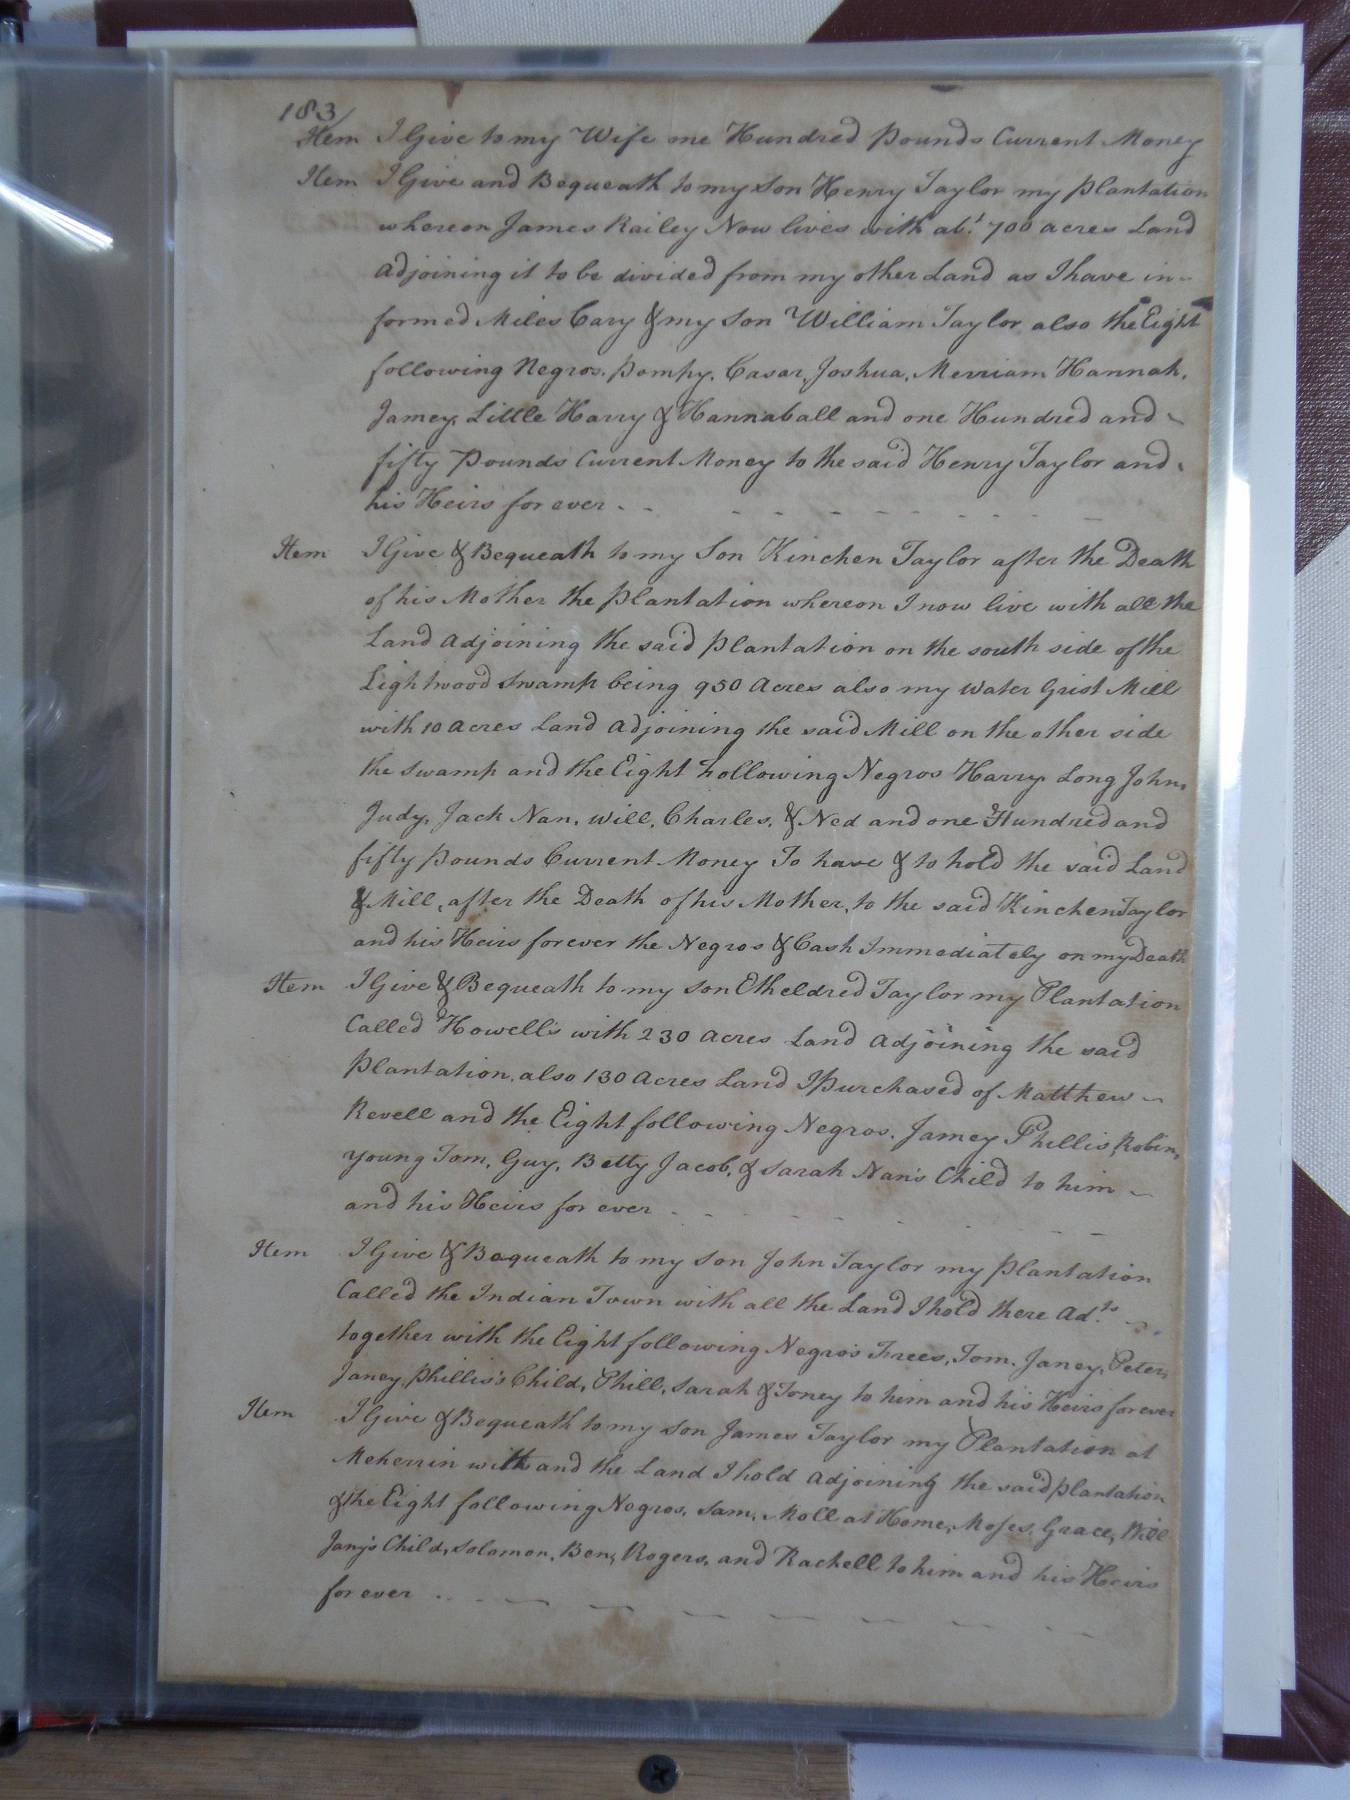 183
Item I Give to my Wife one Hundred Pounds Current Money
Item I Give and Bequeath to my Son Henry Taylor my plantation
whereon James Railey Now lives with abt. 700 acres Land
Adjoining it to be divided from my other Land as I have in-
formed Miles Cary & my Son William Taylor also the Eight
following Negros. Pompy, Casar, Joshua, Merriam Hannah,
Jamey, Little Harry & Hannaball and one Hundred and
fifty Pounds Current Money to the said Henry Taylor and
his Heirs for ever
Item I Give & Bequeath to my Son Kinchen Taylor after the Death
of his Mother the Plantation whereon I now live with all the
Land Adjoining the said plantation on the south side of the
Lightwood Swamp being 950 Acres also my Water Grist Mill
with 10 Acres Land Adjoining the said Mill on the other side
the Swamp and the Eight hollowing Negros Harry, Long John,
Judy, Jack Nan, Will, Charles, & Ned and one Hundred and
fifty Pounds Current Money To have & to hold the said Land
& Mill, after the Death of his Mother, to the said Kinchen Taylor
and his Heirs forever the Negros & Cash Immediately on my Death
Item I Give & Bequeath to my Son Etheldred Taylor my Plantation
Called Howell's with 230 Acres Land Adjoining the said
Plantation, also 130 Acres Land I Purchased of Matthew
Revell and the Eight following Negros. Jamey Phillis, Robin,
young Tom, Guy, Betty Jacob, & Sarah Nan's Child to him
and his Heirs for ever
Item I Give & Bequeath to my Son John Taylor my plantation
Called the Indian Town with all the Land I hold there Ad.to
together with the Eight following Negros Frees, Tom. Janey, Peter,
Janey Phillis's Child, Phill, Sarah & Toney to him and his Heirs forever
Item I Give & Bequeath to my Son James Taylor my Plantation at
Meherrin with and the Land I hold Adjoining the said plantation
& the Eight following Negros, Sam, Moll at Home, Moses, Grace, Will
Jany's Child, Solomon, Ben, Rogers, and Rachell to him and his Heirs
for ever